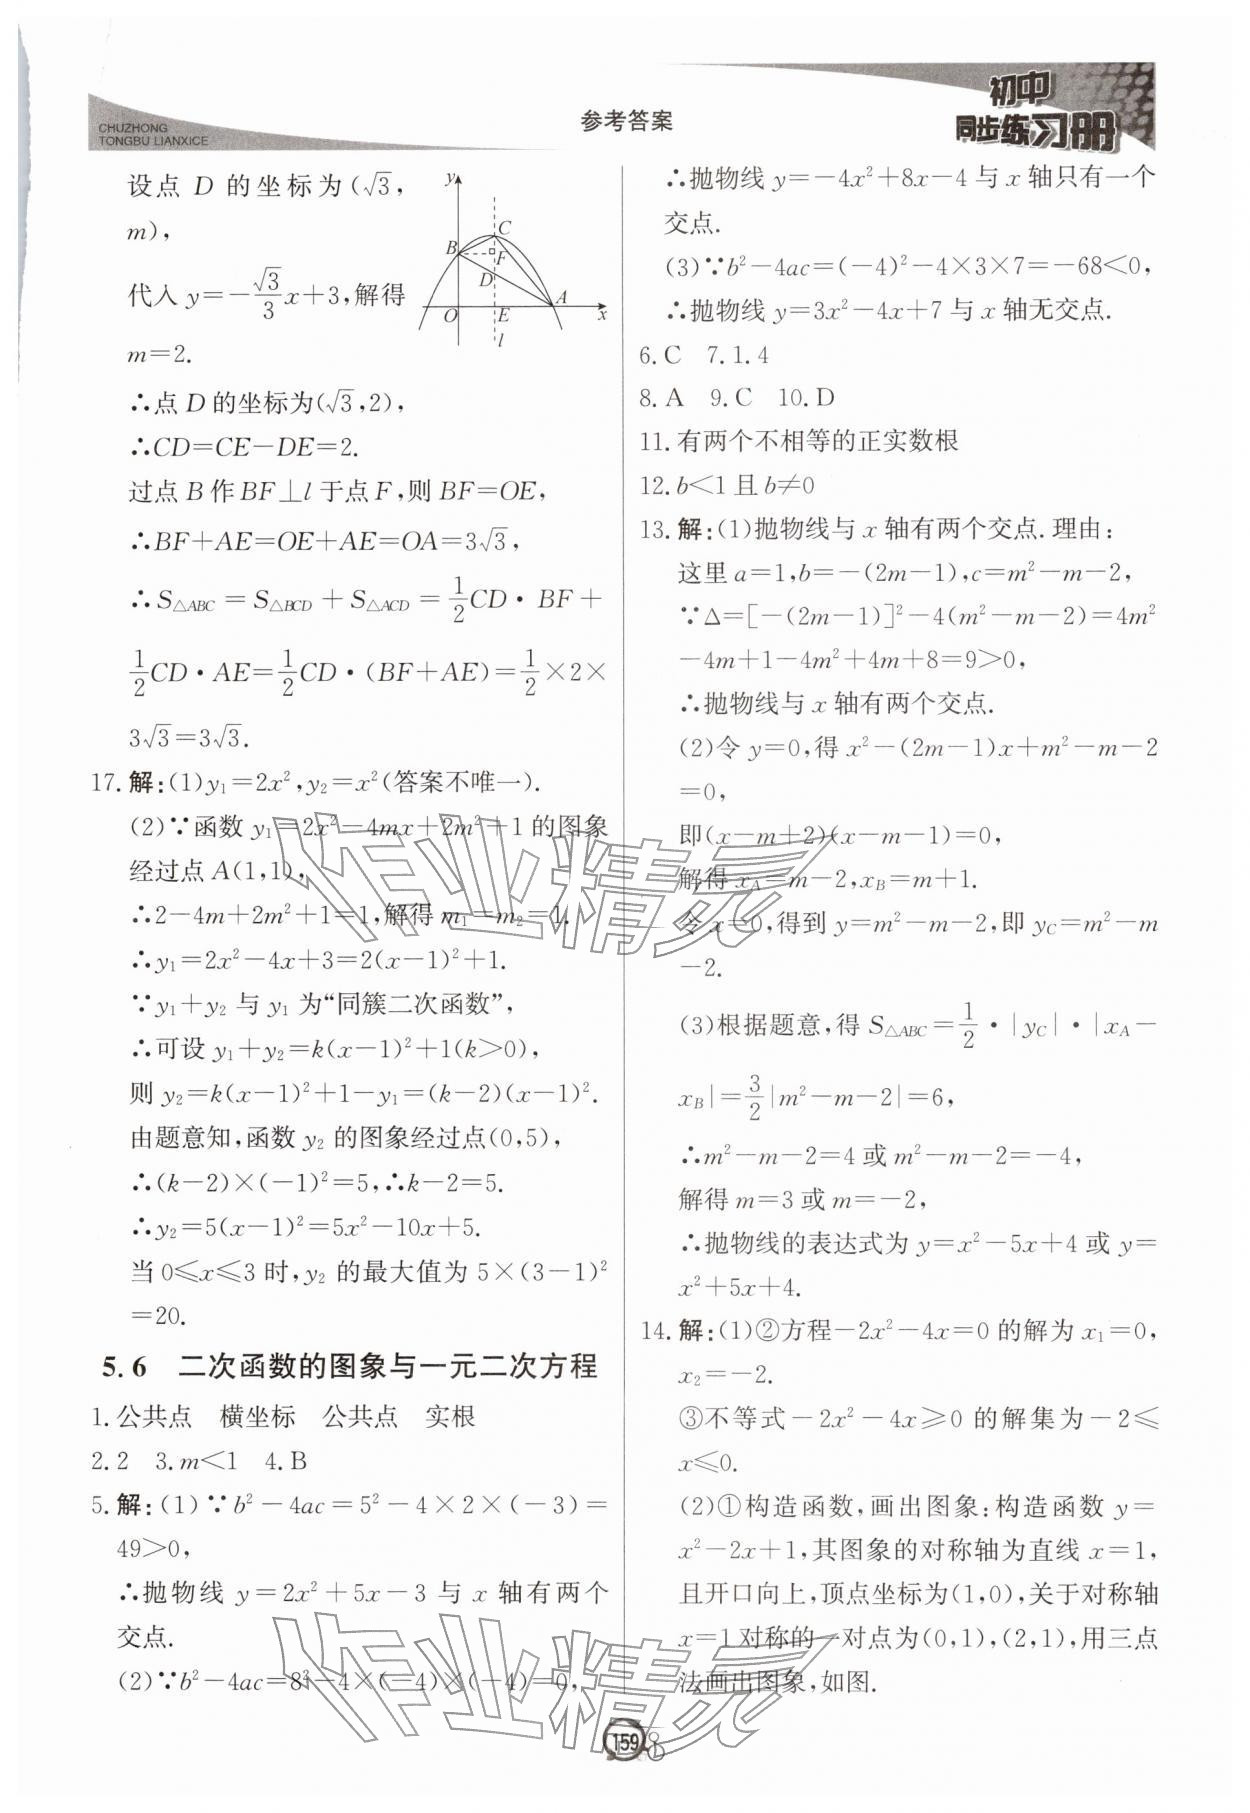 CHUZHONG
TONGBU LIANXICE
参考答案
初中
同步练习册
设点 D 的坐标为(√3,
m),
代入 y=-√3/3 x+3,解得
m=2.
∴点 D 的坐标为(√3,2),
∴CD=CE-DE=2.
过点 B 作 BF⊥l 于点 F,则 BF=OE,
∴BF+AE=OE+AE=OA=3√3,
∴S△ABC=S△BCD+S△ACD=1/2 CD·BF+
1/2 CD·AE=1/2 CD·(BF+AE)=1/2×2×
3√3=3√3.
y
C
B
F
D
O
E
A
x
l
17.解:(1)y₁=2x²,y₂=x²(答案不唯一).
(2)∵函数 y₁=2x²-4mx+2m²+1 的图象
经过点 A(1,1),
∴2-4m+2m²+1=1,解得 m₁=m₂=1.
∴y₁=2x²-4x+3=2(x-1)²+1.
∵y₁+y₂ 与 y₁ 为“同簇二次函数”,
∴可设 y₁+y₂=k(x-1)²+1(k>0),
则 y₂=k(x-1)²+1-y₁=(k-2)(x-1)².
由题意知,函数 y₂ 的图象经过点(0,5),
∴(k-2)×(-1)²=5,∴k-2=5.
∴y₂=5(x-1)²=5x²-10x+5.
当 0≤x≤3 时,y₂ 的最大值为 5×(3-1)²
=20.
5.6 二次函数的图象与一元二次方程
1.公共点 横坐标 公共点 实根
2.2 3.m<1 4.B
5.解:(1)∵b²-4ac=5²-4×2×(-3)=
49>0,
∴抛物线 y=2x²+5x-3 与 x 轴有两个
交点.
(2)∵b²-4ac=8²-4×(-4)×(-4)=0,
∴抛物线 y=-4x²+8x-4 与 x 轴只有一个
交点.
(3)∵b²-4ac=(-4)²-4×3×7=-68<0,
∴抛物线 y=3x²-4x+7 与 x 轴无交点.
6.C 7.1.4
8.A 9.C 10.D
11.有两个不相等的正实数根
12.b<1 且 b≠0
13.解:(1)抛物线与 x 轴有两个交点.理由:
这里 a=1,b=-(2m-1),c=m²-m-2,
∵Δ=[-(2m-1)]²-4(m²-m-2)=4m²
-4m+1-4m²+4m+8=9>0,
∴抛物线与 x 轴有两个交点.
(2)令 y=0,得 x²-(2m-1)x+m²-m-2
=0,
即(x-m+2)(x-m-1)=0,
解得 xA=m-2,xB=m+1.
令 x=0,得到 y=m²-m-2,即 yC=m²-m
-2.
(3)根据题意,得 S△ABC=1/2·|yC|·|xA-
xB|=3/2|m²-m-2|=6,
∴m²-m-2=4 或 m²-m-2=-4,
解得 m=3 或 m=-2,
∴抛物线的表达式为 y=x²-5x+4 或 y=
x²+5x+4.
14.解:(1)②方程-2x²-4x=0 的解为 x₁=0,
x₂=-2.
③不等式-2x²-4x≥0 的解集为-2≤
x≤0.
(2)①构造函数,画出图象:构造函数 y=
x²-2x+1,其图象的对称轴为直线 x=1,
且开口向上,顶点坐标为(1,0),关于对称轴
x=1 对称的一对点为(0,1),(2,1),用三点
法画出图象,如图.
作业精灵
作业精灵
159